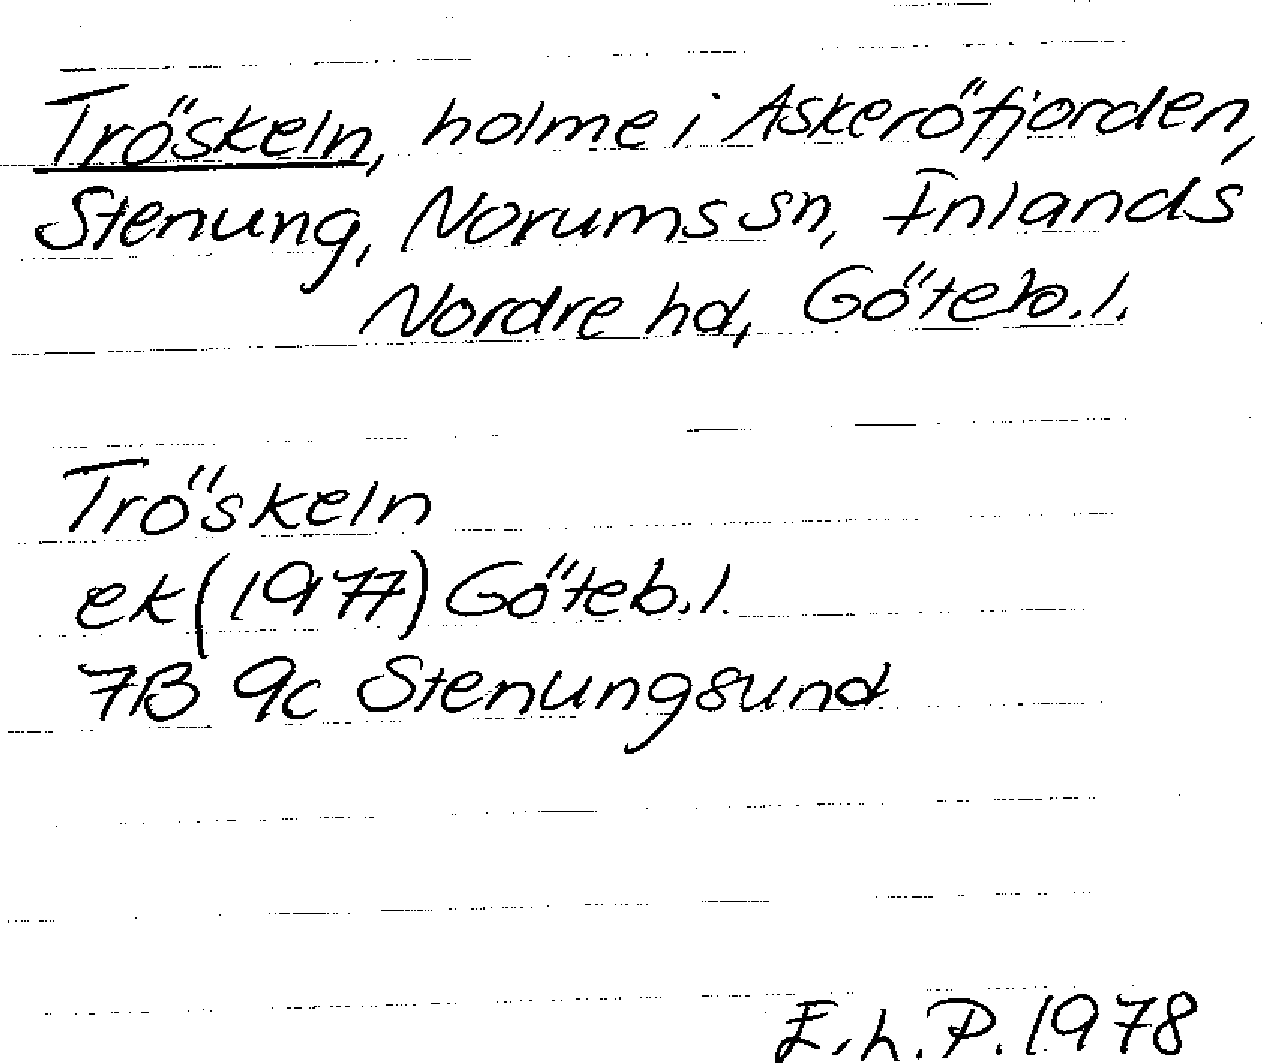 Tröskeln, holme i Askeröfjorden,
Stenung, Norums sn, Inlands
Nordre hd, Göteb. l.
Tröskeln
ek (1977) Göteb. l.
7B 9c Stenungsund
E. h. P. 1978